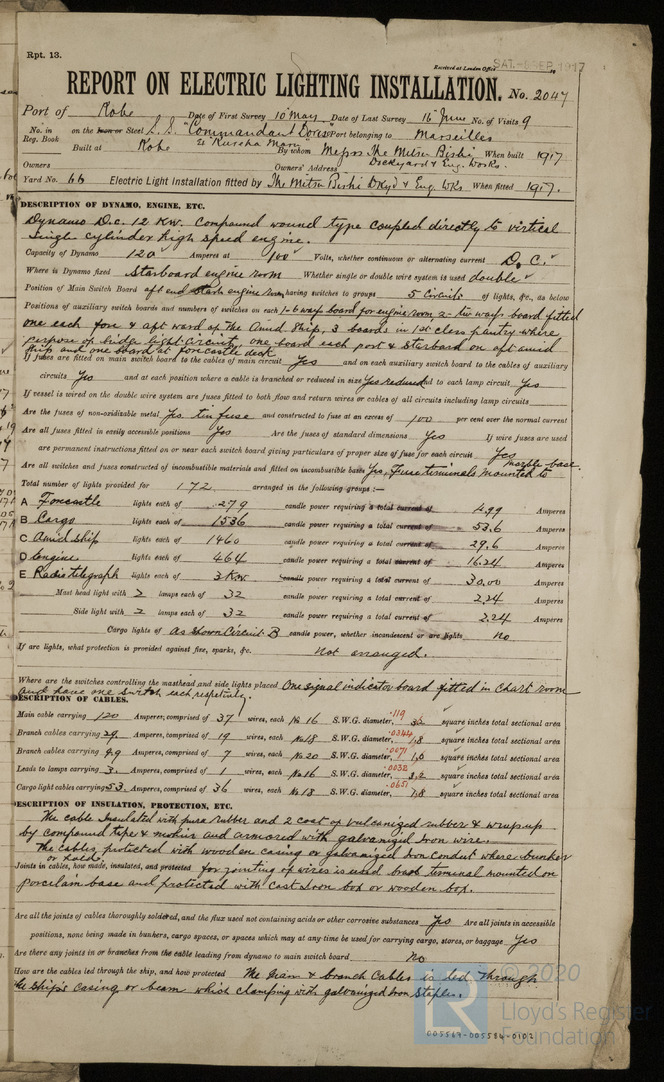 Rpt. 13.
Received at London Office SAT. SEP. 1917
REPORT ON ELECTRIC LIGHTING INSTALLATION. No. 2047
Port of Kobe Date of First Survey 10 May Date of Last Survey 16 June No. of Visits 9
No. in Reg. Book on the Iron or Steel S.S. "Commandant Dorise" Port belonging to Marseilles
ex Kuraha Maru
Built at Kobe By whom Messrs The Mitsu Bishi Dockyard & Eng. Works. When built 1917
Owners Owners' Address
Yard No. 66 Electric Light Installation fitted by The Mitsu Bishi Dkyd & Eng. Wks When fitted 1917.
DESCRIPTION OF DYNAMO, ENGINE, ETC.
Dynamo D.C. 12 Kw. Compound wound type coupled directly to virtical
single cylinder high speed engine.
Capacity of Dynamo 120 Amperes at 100 Volts, whether continuous or alternating current D.C.
Where is Dynamo fixed Starboard engine room Whether single or double wire system is used double
Position of Main Switch Board aft end engine room having switches to groups 5 Circuits of lights, &c., as below
Positions of auxiliary switch boards and numbers of switches on each 1-6 way board for engine room, 2- two way board fitted
one each fore & aft ward of the Amid Ship, 3 boards in 1st class pantry where
purpose of bridge light circuits, one board each port & starboard on aft amid
ship and one board at forecastle deck.
If fuses are fitted on main switch board to the cables of main circuit Yes and on each auxiliary switch board to the cables of auxiliary
circuits Yes and at each position where a cable is branched or reduced in size Yes reduced and to each lamp circuit Yes
If vessel is wired on the double wire system are fuses fitted to both flow and return wires or cables of all circuits including lamp circuits
Are the fuses of non-oxidizable metal Yes. tin fuse and constructed to fuse at an excess of 100 per cent over the normal current
Are all fuses fitted in easily accessible positions Yes Are the fuses of standard dimensions Yes If wire fuses are used
are permanent instructions fitted on or near each switch board giving particulars of proper size of fuse for each circuit Yes
Are all switches and fuses constructed of incombustible materials and fitted on incombustible bases Yes, Fuse terminals mounted to marble base
Total number of lights provided for 172 arranged in the following groups :—
A Forecastle lights each of 279 candle power requiring a total current of 4.99 Amperes
B Cargo lights each of 1536 candle power requiring a total current of 53.6 Amperes
C Amid ship lights each of 1460 candle power requiring a total current of 29.6 Amperes
D Engine lights each of 464 candle power requiring a total current of 16.24 Amperes
E Radio telegraph lights each of 3 Kw candle power requiring a total current of 30.00 Amperes
Mast head light with 2 lamps each of 32 candle power requiring a total current of 2.24 Amperes
Side light with 2 lamps each of 32 candle power requiring a total current of 2.24 Amperes
Cargo lights of As shown Circuit B candle power, whether incandescent or arc lights no
If arc lights, what protection is provided against fire, sparks, &c. Not arranged.
Where are the switches controlling the masthead and side lights placed One signal indicator board fitted in chart room
and have one switch each respectively.
DESCRIPTION OF CABLES.
Main cable carrying 120 Amperes, comprised of 37 wires, each No 16 S.W.G. diameter, .119 square inches total sectional area
Branch cables carrying 29. Amperes, comprised of 19 wires, each No 18 S.W.G. diameter, .0344 1.8 square inches total sectional area
Branch cables carrying 9.9 Amperes, comprised of 7 wires, each No 20 S.W.G. diameter, .0071 square inches total sectional area
Leads to lamps carrying 3. Amperes, comprised of 1 wires, each No 16 S.W.G. diameter, .0032 3.2 square inches total sectional area
Cargo light cables carrying 53 Amperes, comprised of 36 wires, each No 18 S.W.G. diameter, .0651 1.8 square inches total sectional area
DESCRIPTION OF INSULATION, PROTECTION, ETC.
The cable Insulated with pura rubber and 2 coat of vulcanized rubber & wrap up
by compound tape & and armored with galvanized Iron wire.
The cables, protected with wooden casing or galvanized Iron Conduit where bunker
or holds.
Joints in cables, how made, insulated, and protected for jointing of wires is used brass teminal mounted on
porcelain base and protected with cast Iron box or wooden box.
Are all the joints of cables thoroughly soldered, and the flux used not containing acids or other corrosive substances Yes Are all joints in accessible
positions, none being made in bunkers, cargo spaces, or spaces which may at any time be used for carrying cargo, stores, or baggage Yes
Are there any joints in or branches from the cable leading from dynamo to main switch board No
How are the cables led through the ship, and how protected The Main & branch Cables is led through
the ship's casing or beam which clamping with galvanized Iron Staples.
© 2020
Lloyd's Register
Foundation
005569-005584-0102